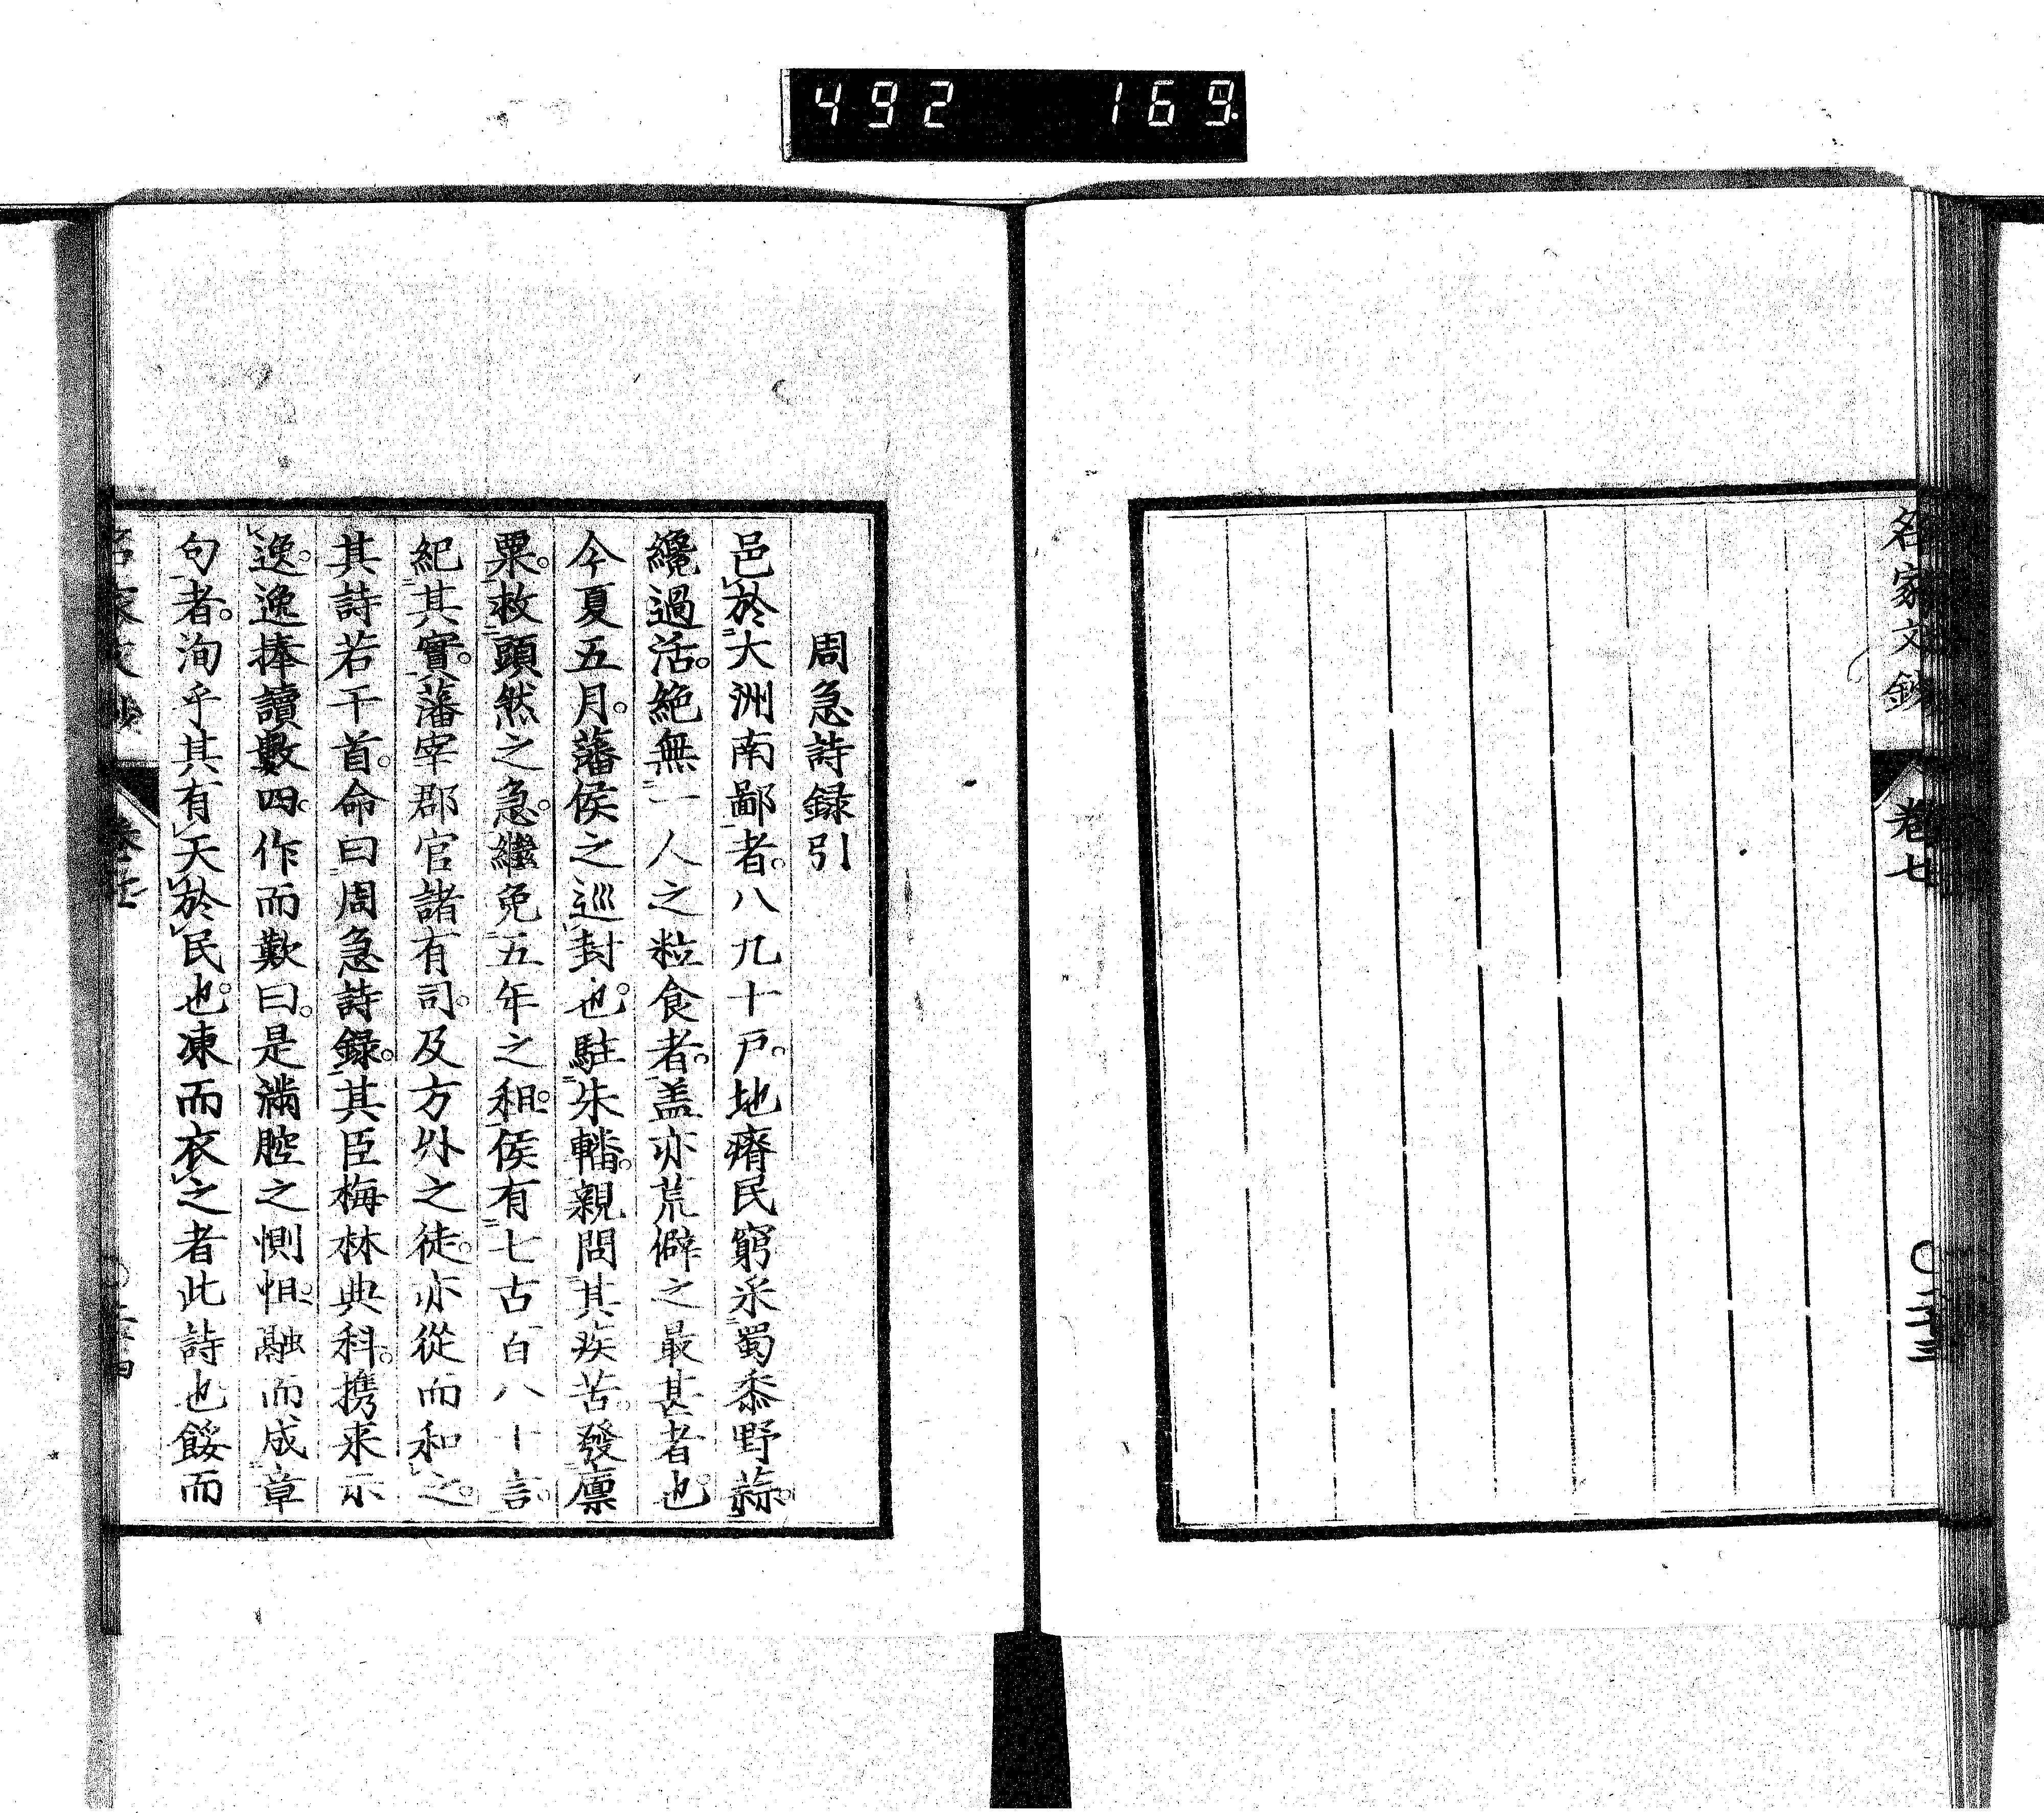 492 169
名家文鈔 卷七 〇二十三
周急詩録引
邑於大洲南鄙者。八九十戸。地瘠民窮。采蜀黍野蒜。
纔過活。絶無一人之粒食者。盖亦荒僻之最甚者也。
今夏五月。藩侯之巡封也。駐朱轓。親問其疾苦。發廩
粟。救頭然之急。繼免五年之租。侯有七古百八十言。
紀其實。藩宰郡官諸有司。及方外之徒。亦從而和之。
其詩若干首。命曰周急詩録。其臣梅林典科。携来示
逸。逸捧讀數四。作而歎曰。是滿腔之惻怛。融而成章
句者。洵乎其有天於民也。凍而衣之者此詩也餒而
名家文鈔